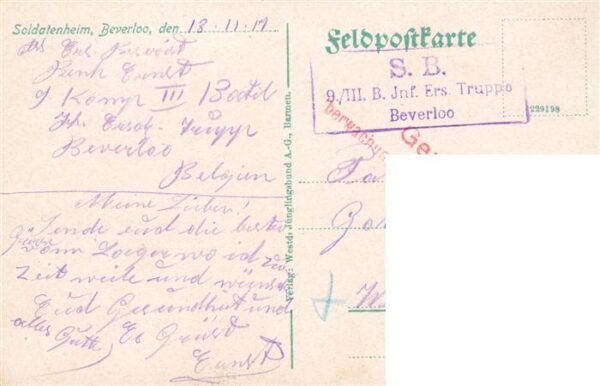 Soldatenheim, Beverloo, den 13.11.17
Ers. Reservist
Ernst
9 Komp III Batl
Ersatz Trupp
Beverloo
Belgien
Meine Lieben!
Sende euch die besten
Grüsse vom Lager wo ich zur
Zeit weile und wünsche
Euch Gesundheit und
alles Gute Es Grüsst
Ernst
Verlag: Westd. Jünglingsbund A.-G., Barmen.
Feldpostkarte
S. B.
9./III. B. Jnf. Ers. Truppe
Beverloo
229198
berwachun
Ge